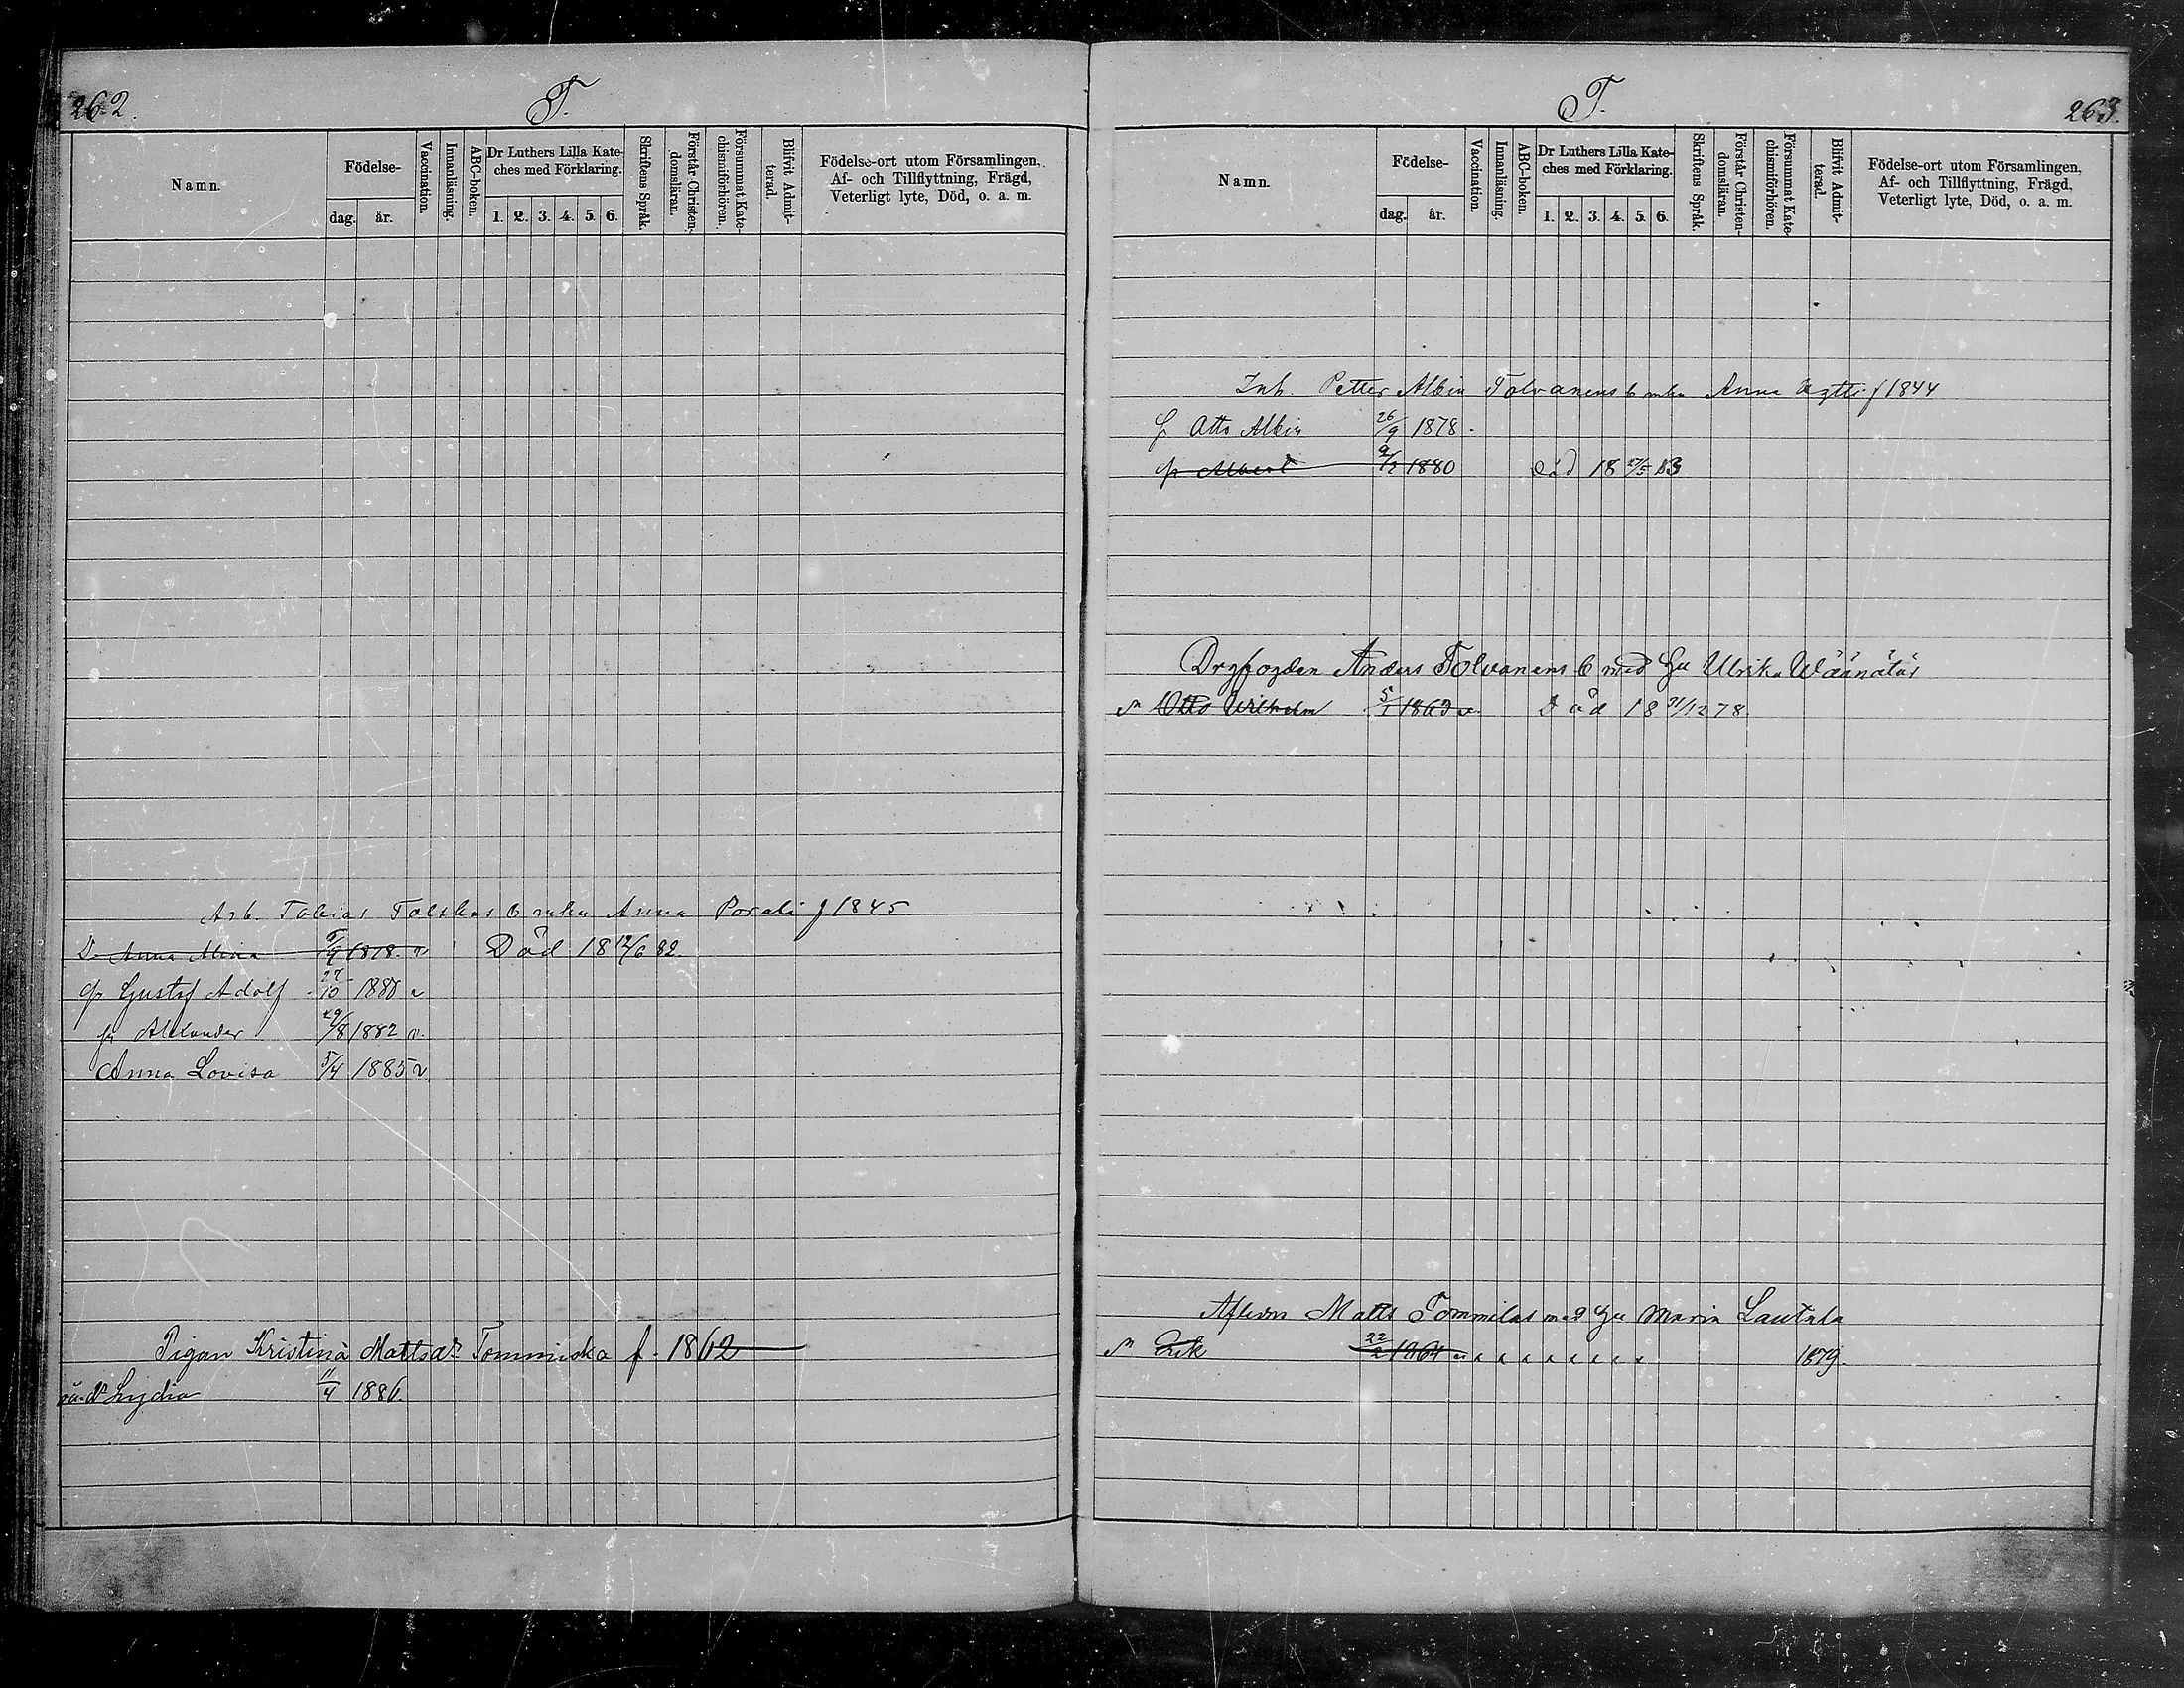 262.
T.
Namn.
Födelse-
dag. år.
Vaccination.
Innanläsning.
ABC-boken.
Dr Luthers Lilla Kate-
ches med Förklaring.
1. 2. 3. 4. 5. 6.
Skriftens Språk.
Förstår Christen-
domsläran.
Försummat Kate-
chismiförhören.
Blifvit Admit-
terad.
Födelse-ort utom Församlingen,
Af- och Tillflyttning, Frägd,
Veterligt lyte, Död, o. a. m.
Arb. Tobias b Anna f 1845
D. Anna 1878. v Död 18 12/6 82.
Gustaf Adolf 27/10 1880 v
Alexander 29/8 1882 v.
Anna Lovisa 5/4 1885 v
Pigan Kristina Mattsdr Tommiska f. 1862
Lydia 11/4 1886.
T.
263.
Namn.
Födelse-
dag. år.
Vaccination.
Innanläsning.
ABC-boken.
Dr Luthers Lilla Kate-
ches med Förklaring.
1. 2. 3. 4. 5. 6.
Skriftens Språk.
Förstår Christen-
domsläran.
Försummat Kate-
chismiförhören.
Blifvit Admit-
terad.
Födelse-ort utom Församlingen,
Af- och Tillflyttning, Frägd,
Veterligt lyte, Död, o. a. m.
Inh. Petter Albin Tolvanens b Anna f 1844
Otto Albin 26/9 1878.
Albert 1880 död 18 27/5 83
Anders Tolvanens b med Hu Ulrika Wäänätär
Otto Wilhelm 5/1 1863 v. Död 18 31/12 78.
Matts Tommilas med Hu Maria Lautala
Erik 22/2 1864 1879.